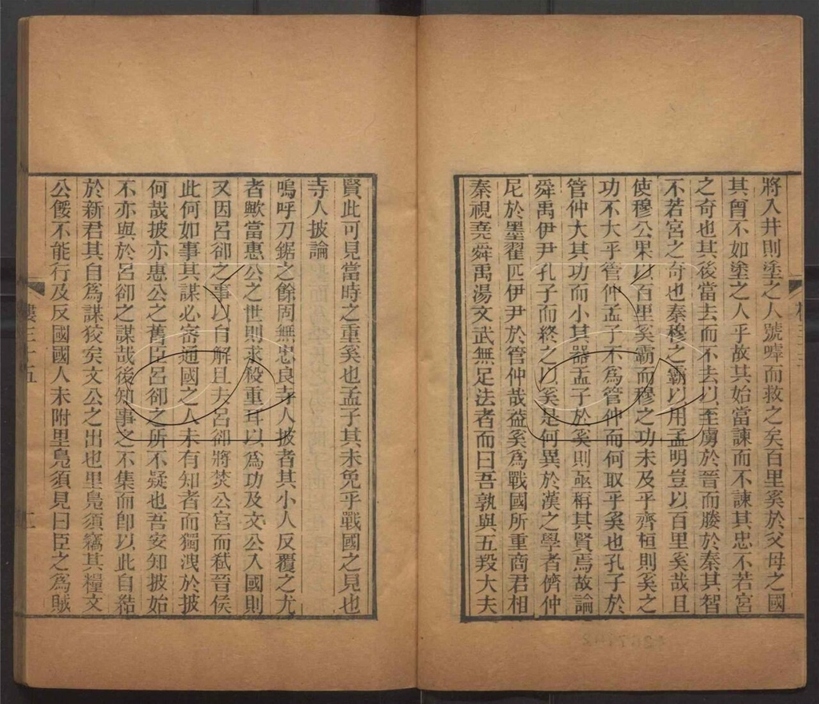 將入井則塗之人號嘑而救之矣百里奚於父母之國
其曾不如塗之人乎故其始當諫而不諫其忠不若宮
之奇也其後當去而不去以至虜於晉而媵於秦其智
不若宮之奇也秦穆之霸以用孟明豈以百里奚哉且
使穆公果以百里奚霸而穆之功未及乎齊桓則奚之
功不大乎管仲孟子不爲管仲而何取乎奚也孔子於
管仲大其功而小其器孟子於奚則亟稱其賢焉故論
舜禹伊尹孔子而終之以奚是何異於漢之學者儕仲
尼於墨翟匹伊尹於管仲哉葢奚爲戰國所重商君相
秦視堯舜禹湯文武無足法者而曰吾孰與五羖大夫
賢此可見當時之重奚也孟子其未免乎戰國之見也
寺人披論
嗚呼刀鋸之餘固無忠良寺人披者其小人反覆之尤
者歟當惠公之世則求殺重耳以爲功及文公入國則
又因呂郤之事以自解且夫呂郤將焚公宮而弒晉侯
此何如事其謀必密通國之人未有知者而獨洩於披
何哉披亦惠公之舊臣呂郤之所不疑也吾安知披始
不亦與於呂郤之謀哉後知事之不集而卽以此自結
於新君其自爲謀狡矣文公之出也里鳧須竊其糧文
公餒不能行及反國國人未附里鳧須見曰臣之爲賊
樓三十五